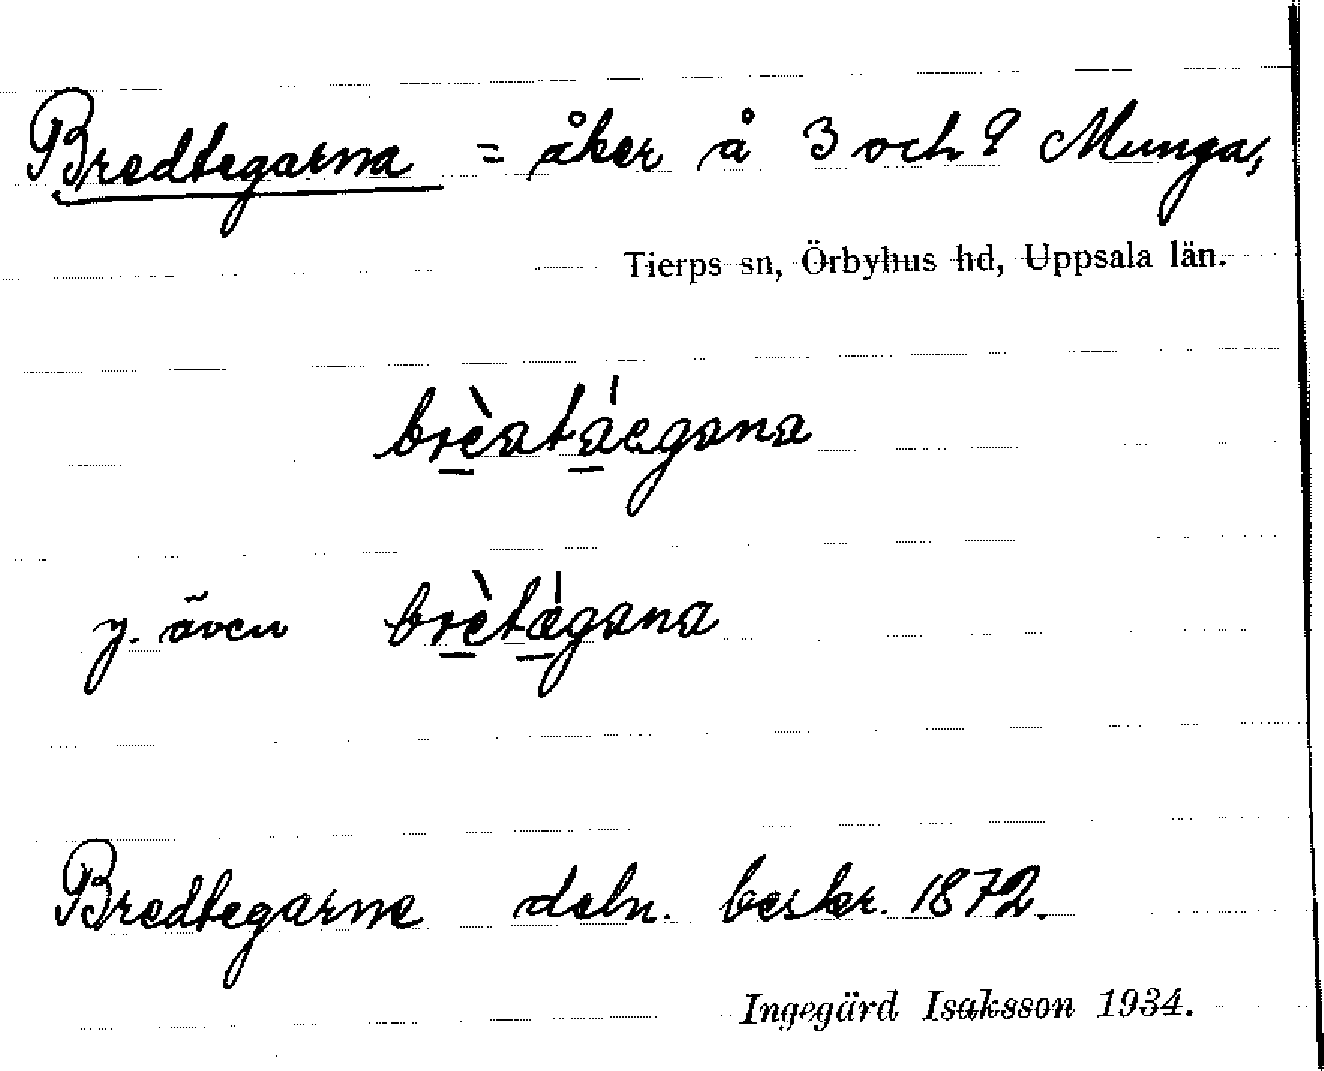 Bredtegarna = åker å 3 och 8 Munga,
Tierps sn, Örbyhus hd, Uppsala län.
brèatáegana
y. även brètǽgana
Bredtegarne deln. beskr. 1872.
Ingegärd Isaksson 1934.